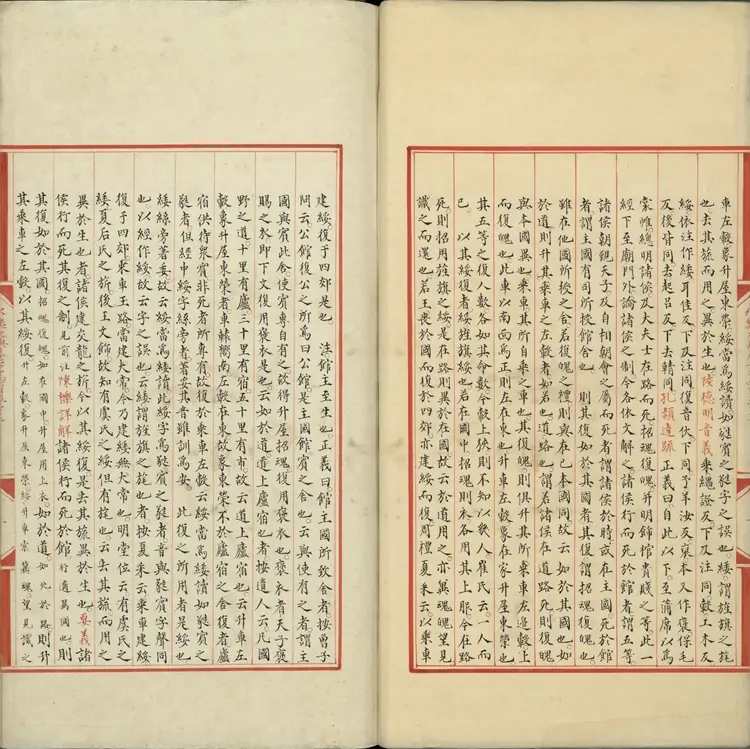 車左轂象升屋東榮綏當爲緌讀如蕤賓之蕤字之誤也緌謂旌旗之旄
也去其旒而用之異於生也陸德明音義乘繩證反下及注同轂工木反
綏依注作緌耳佳反下及注同復音伏下同予羊汝反裒本又作褒保毛
反後皆同去起呂反下去輤同孔穎達疏正義曰自此以下至蒲席以爲
裳帷總明諸侯及大夫士在路而死招魂復魄并明飾棺貴賤之等此一
經下至廟門外論諸侯之制今各依文解之諸侯行而死於館者謂五等
諸侯朝覲天子及自相朝會之屬而死者謂諸侯於時或在主國死於館
者謂主國有司所授館舍也則其復如於其國者其復謂招魂復魄也
雖在他國所授之舍若復魄之禮則與在己本國同故云如於其國也如
於道則升其乘車之左轂者如若也道路也謂若諸侯在道路死則復魄
與本國異也乘車其所自乘之車也其復魄則俱升其所乘車左邊轂上
而復魄也此車以南面爲正則左在東也升車左轂象在家升屋東榮也
其五等之復人數各如其命數今轂上狹則不知以幾人崔氏云一人而
已以其綏復者綏旌旗綏也若在國中招魂則衣各用其上服今在路
死則招用旌旗之綏是在路則異於在國故云於道用之亦冀魂魄望見
識之而還也若王喪於國而復於四郊亦建綏而復周禮夏采云以乘車
建綏復于四郊是也注館主至生也正義曰館主國所致舍者按曾子
問云公館復公之所爲曰公館是主國館賓之舍也云與使有之者謂主
國與賓此舍使賓專自有之故得升屋招魂復用褒衣也褒衣者天子褒
賜之衣即下文復用褒衣是也云如於道道上廬宿也者按遺人云凡國
野之道十里有廬三十里有宿五十里有市故云道上廬宿也云升車左
轂象升屋東榮者車轅嚮南左轂在東故象東榮不於廬宿之舍復者廬
宿供待衆賓非死者所專有故復於乘車左轂云綏當爲緌讀如蕤賓之
蕤者但經中綏字絲旁著妥其音雖訓爲安此復之所用者是緌也
緌絲旁著委故云綏當爲緌讀此綏字爲蕤賓之蕤者音與蕤賓字聲同
也以經作綏故云字之誤也云緌謂旌旗之旄也者按夏采云乘車建綏
復于四郊乘車玉路當建大常今乃建綏無大常也明堂位云有虞氏之
緌夏后氏之旂後王文飾故知有虞氏之緌但有旄也云去其旒而用之
異於生也者諸侯建交龍之旂今以其綏復是去其旒異於生也要義諸
侯行而死其復之制見前注陳櫟詳解諸侯行而死於館行適萬國也則
其復如於其國招魂復魄如在國中升屋用上衣如於道如死於路則升
其乘車之左轂以其綏復升左轂象升屋東榮綏升車索冀魂望見識之